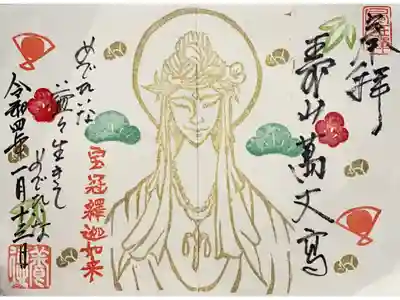 奉拝
寿山萬丈高
宝冠釋迦如来
めでたいな
生きて
めでたいな
令和四年一月十三日